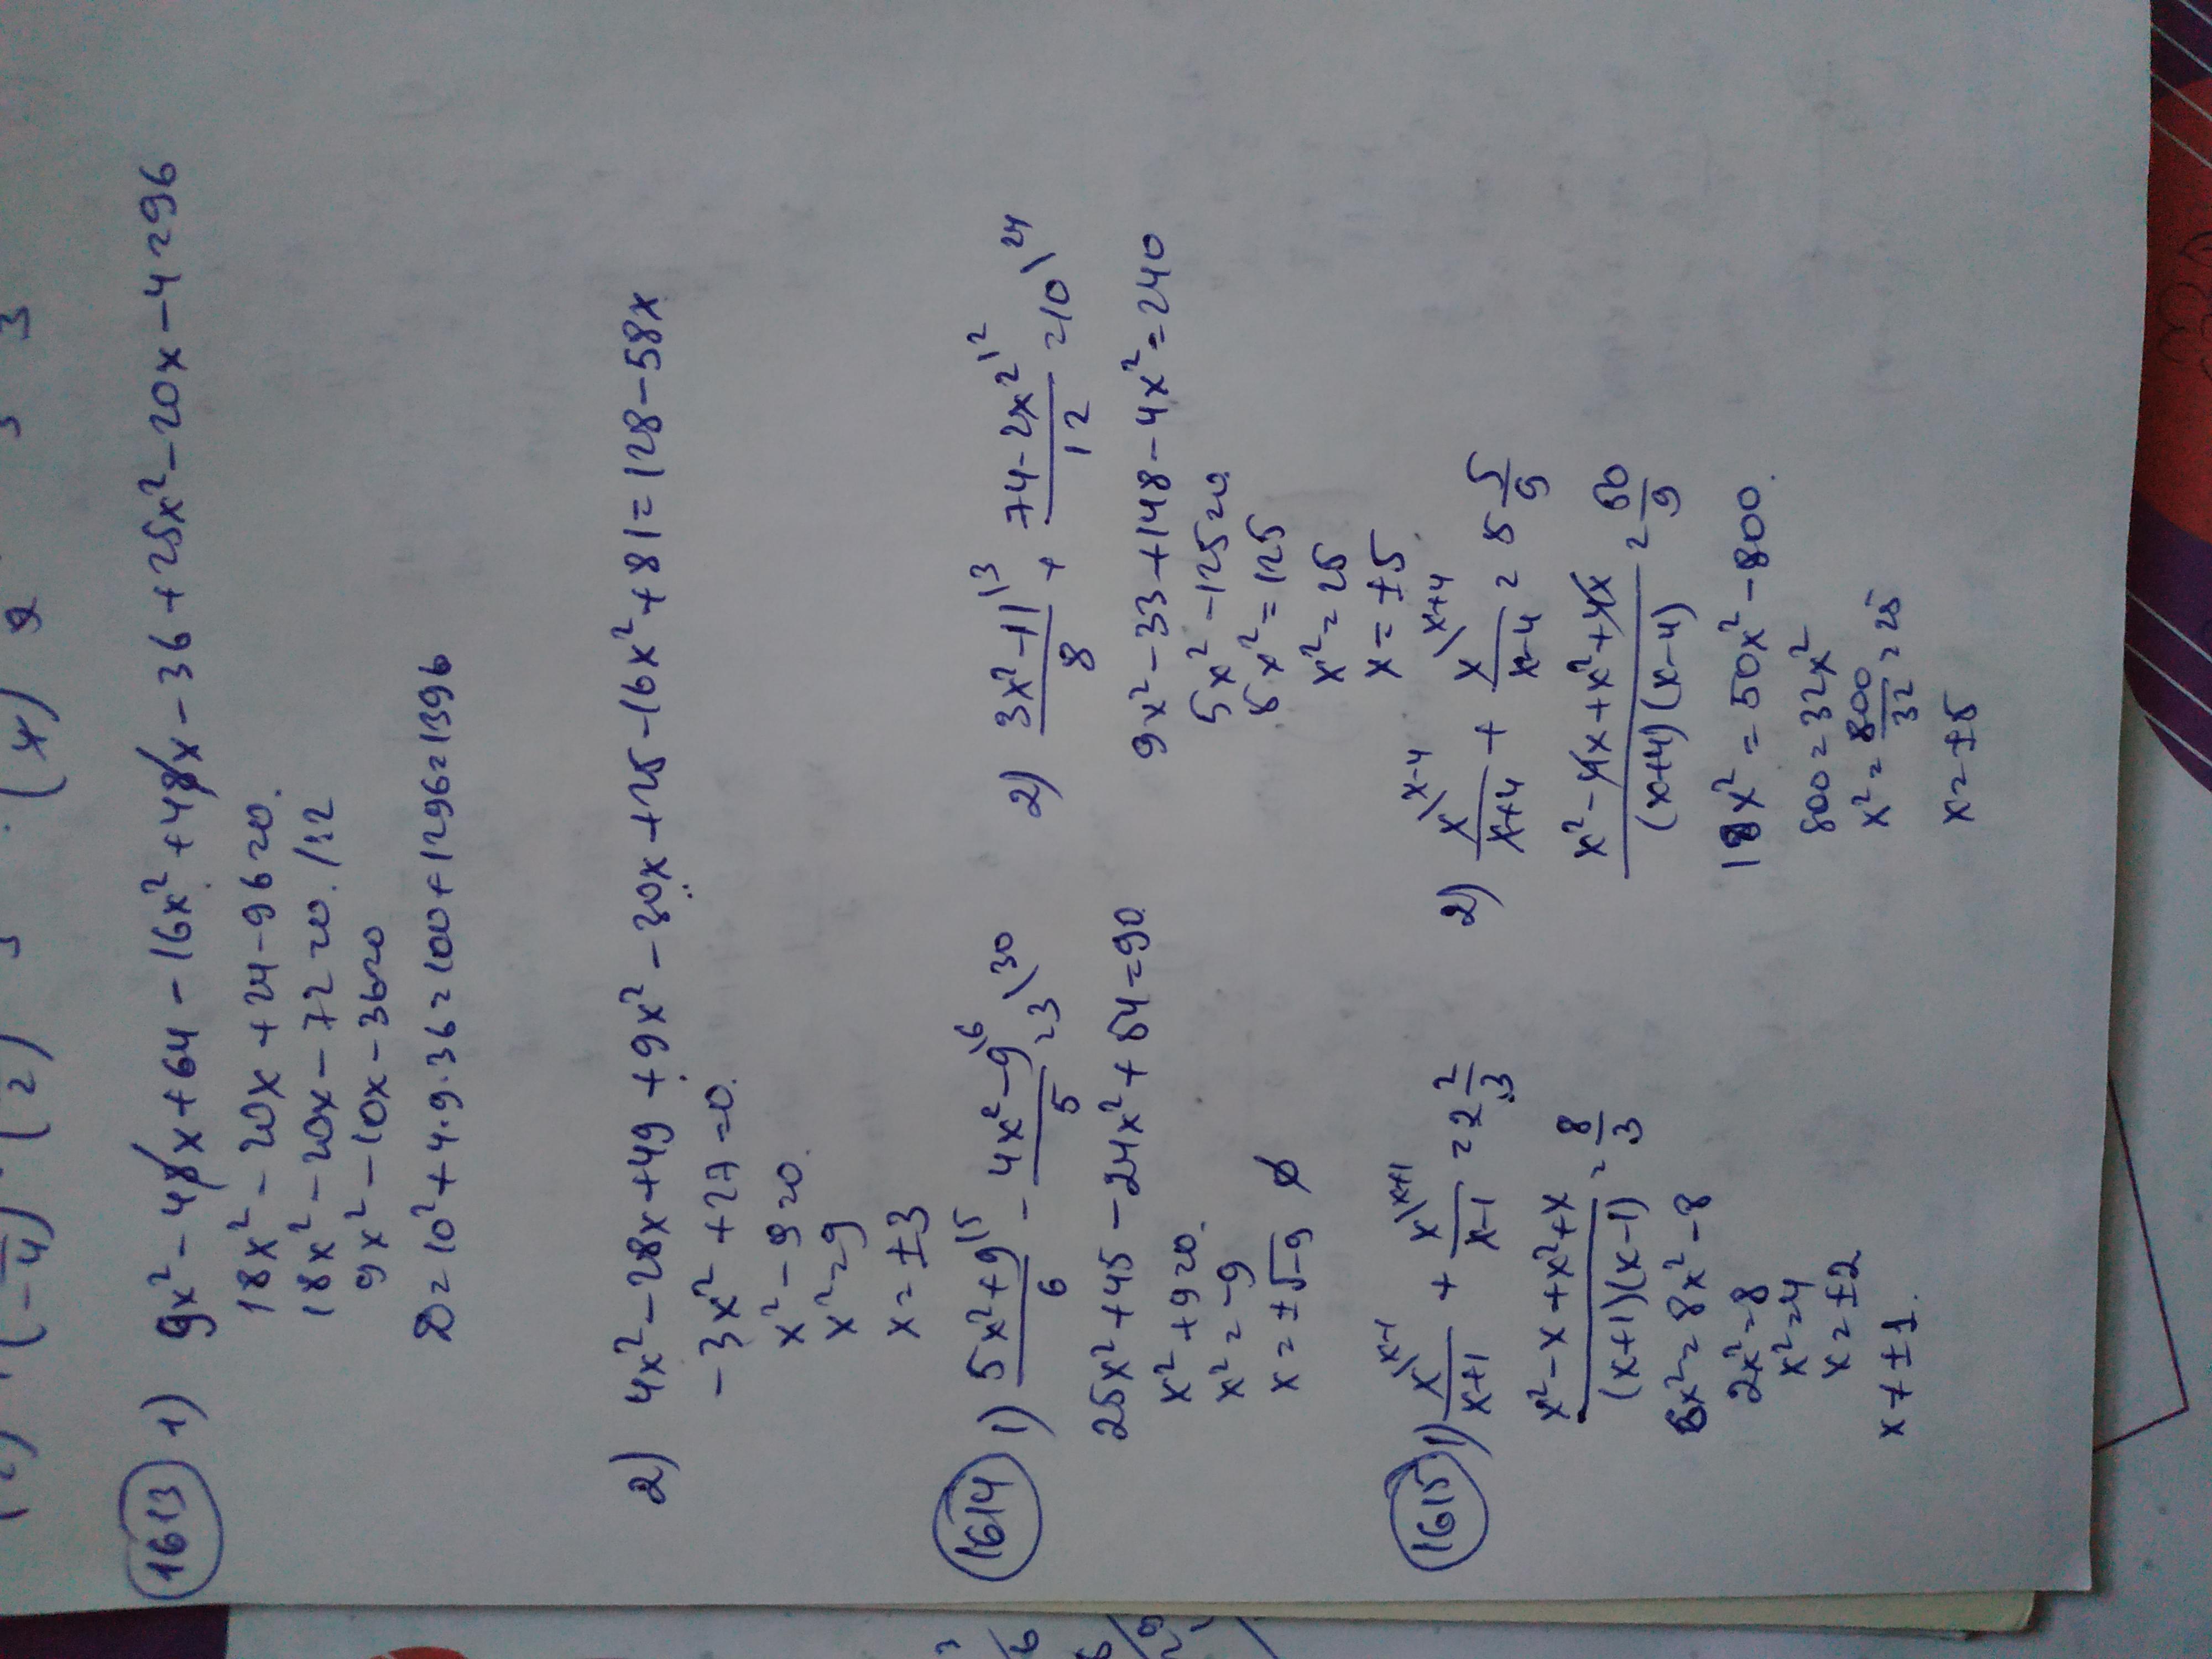 (-4) · (2) 3 · (4) 2 3 3
1613 1) 9x² - 48x + 64 - 16x² + 48x - 36 + 25x² - 20x - 4 = 96
18x² - 20x + 24 - 96 = 0.
18x² - 20x - 72 = 0. /:2
9x² - 10x - 36 = 0
D = 10² + 4·9·36 = 100 + 1296 = 1396
2) 4x² - 28x + 49 + 9x² - 30x + 25 - 16x² + 81 = 128 - 58x
-3x² + 27 = 0.
x² - 9 = 0.
x² = 9
x = ±3
1614 1) (5x² + 9)/6 \5 - (4x² - 9)/5 \6 = 3 \30
25x² + 45 - 24x² + 54 = 90.
x² + 9 = 0.
x² = -9
x = ±√-9 ∅
2) (3x² - 11)/8 \3 + (74 - 2x²)/12 \2 = 10 \24
9x² - 33 + 148 - 4x² = 240
5x² - 125 = 0.
5x² = 125
x² = 25
x = ±5.
1615 1) x/(x+1) \x-1 + x/(x-1) \x+1 = 2 2/3
(x² - x + x² + x)/((x+1)(x-1)) = 8/3
6x² = 8x² - 8
2x² = 8
x² = 4
x = ±2
x ≠ ±1.
2) x/(x+4) \x-4 + x/(x-4) \x+4 = 5 5/9
(x² - 4x + x² + 4x)/((x+4)(x-4)) = 50/9
18x² = 50x² - 800.
800 = 32x²
x² = 800/32 = 25
x = ±5